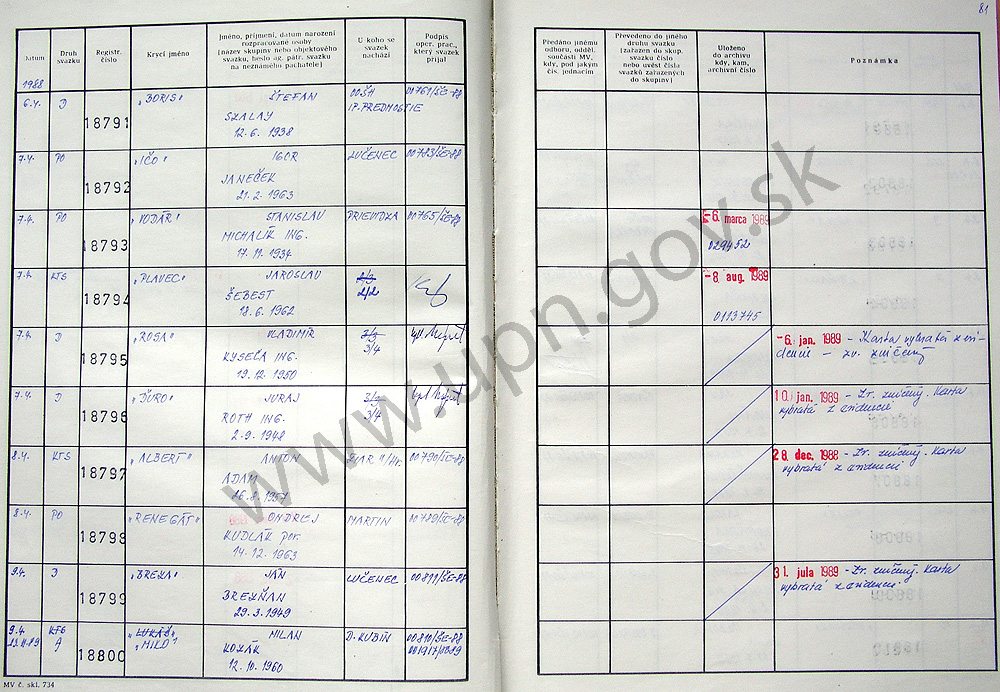 81
Datum
Druh svazku
Registr. číslo
Krycí jméno
Jméno, příjmení, datum narození
rozpracované osoby
(název skupiny nebo objektového
svazku, heslo ag. pátr. svazku
na neznámého pachatele)
U koho se
svazek
nachází
Podpis
oper. prac.,
který svazek
přijal
Předáno jinému
odboru, odděl.
součásti MV,
kdy, pod jakým
čís. jednacím
Převedeno do jiného
druhu svazku
(zařazen do skup.
svazku číslo
nebo uvést čísla
svazků zařazených
do skupiny)
Uloženo
do archivu
kdy, kam,
archivní číslo
Poznámka
1988
6.4. D 18791 "BORIS" ŠTEFAN
SZALAY
12. 6. 1938
OOŠH
IP. PREDMOSTIE
00761/ŠE-88
7.4. PO 18792 "IČO" IGOR
JANEČEK
21. 2. 1963
LUČENEC 00783/ŠE-88
7.4. PO 18793 "VODÁR" STANISLAV
MICHALÍK ING.
17. 11. 1934
PRIEVIDZA 00765/ŠE-88
-6. marca 1989
029452
7.4. KTS 18794 "PLAVEC" JAROSLAV
ŠEBEST
18. 6. 1962
2/3
2/2
-8. aug. 1989
0113745
7.4. D 18795 "ROSA" VLADIMÍR
KYSEĽA ING.
19. 12. 1950
3/4
-6. jan. 1989 - Karta vybratá z evi-
dencie - zv. zničený
7.4. D 18796 "ĎURO" JURAJ
ROTH ING.
2. 9. 1948
3/4
10. jan. 1989 - Zv. zničený. Karta
vybratá z evidencie
8.4. KTS 18797 "ALBERT" ANTON
ADAM
26. 8. 1957
ŽIAR n/Hr. 00790/ŠE-88
28. dec. 1988 - Zv. zničený. Karta
vybratá z evidencie
8.4. PO 18798 "RENEGÁT" ONDREJ
KUDLÁK por.
14. 12. 1963
MARTIN 00789/ŠE-88
9.4. D 18799 "BREZA" JÁN
BREZŇAN
29. 3. 1949
LUČENEC 00811/ŠE-88
31. jula 1989 - Zv. zničený. Karta
vybratá z evidencie
9.4. KTS 18800 "LUKÁŠ" MILAN
A "MILO"
KOZÁK
12. 10. 1960
D. KUBÍN 00810/ŠE-88
MV č. skl. 734
www.upn.gov.sk